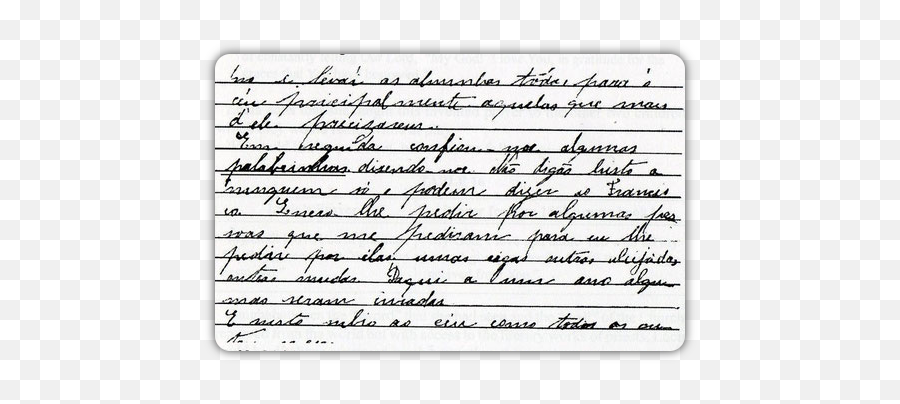 no e levai as alminhas tôdas para o
céu principalmente aquelas que mais
d'ele precizarem.
Em seguida confiou-nos algumas
palabrinhas dizendo-nos não digás histo a
ninguem só o podem dizer ao Francis
co. Quero lhe pedir por algumas pes
soas que me pediram para eu lhe
pedir por elas umas cegas outras aleijadas
outras mudas. Daqui a um ano algu
mas seram curadas
E nisto subio ao céu como todas as ou